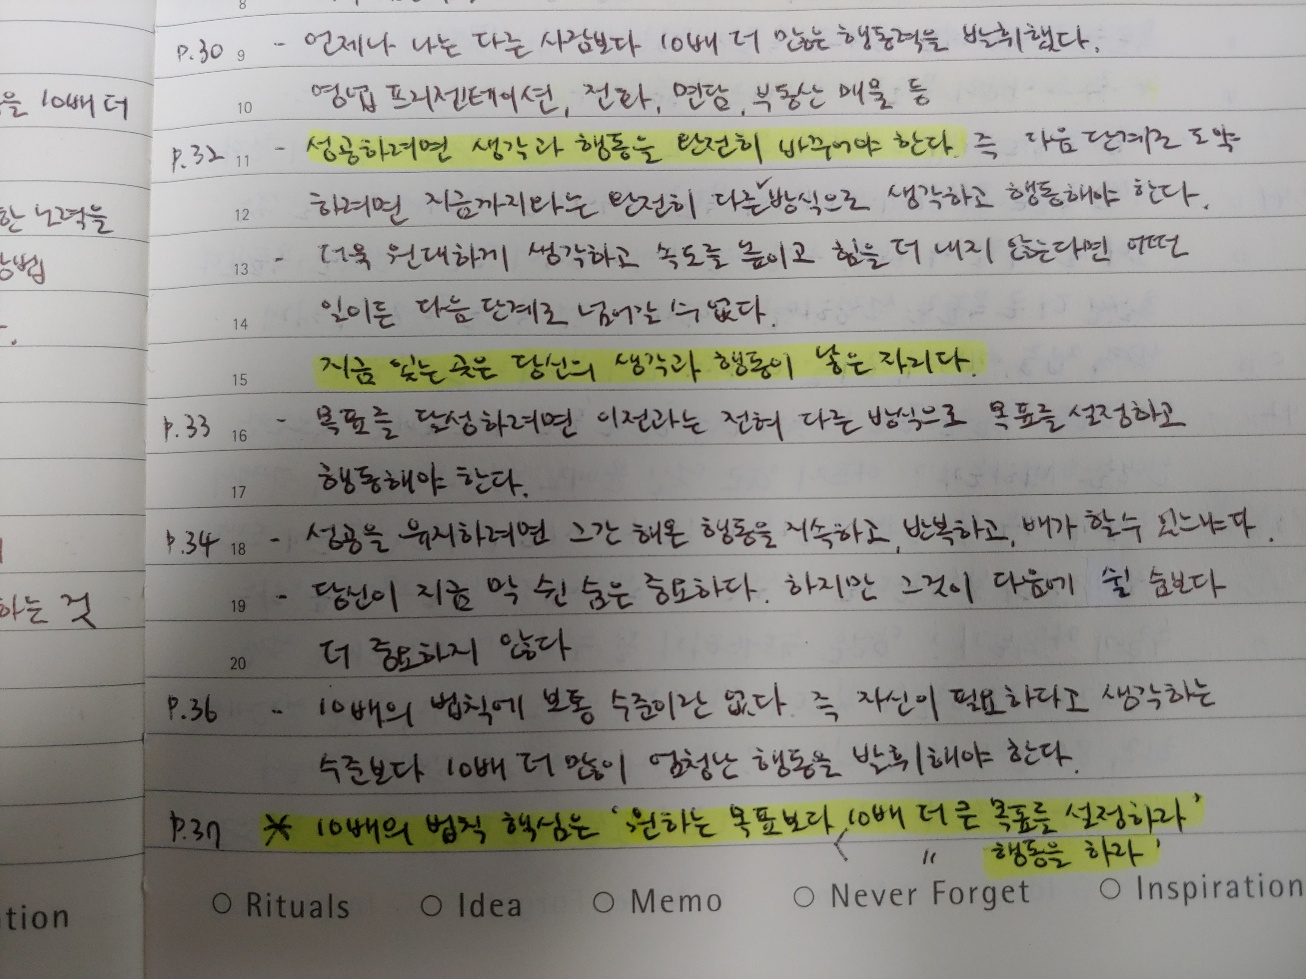 8
을 10배 더
P.30 9 - 언제나 나는 다른 사람보다 10배 더 많은 행동력을 발휘했다.
10 영업 프리젠테이션, 전화, 면담, 부동산 매물 등
P.32 11 - 성공하려면 생각과 행동을 완전히 바꾸어야 한다. 즉 다음 단계로 도약
한 노력을
12 하려면 지금까지와는 완전히 다른✓방식으로 생각하고 행동해야 한다.
방법
13 - 더욱 원대하게 생각하고 속도를 높이고 힘을 더 내지 않는다면 어떤
14 일이든 다음 단계로 넘어갈 수 없다.
15 지금 있는 곳은 당신의 생각과 행동이 낳은 자리다.
P.33 16 - 목표를 달성하려면 이전과는 전혀 다른 방식으로 목표를 설정하고
17 행동해야 한다.
P.34 18 - 성공을 유지하려면 그간 해온 행동을 지속하고, 반복하고, 배가 할수
하는 것
19 - 당신이 지금 막 쉰 숨은 중요하다. 하지만 그것이 다음에 쉴 숨보다
20 더 중요하지 않다
P.36 - 10배의 법칙에 보통 수준이란 없다. 즉 자신이 필요하다고 생각하는
수준보다 10배 더 많이 엄청난 행동을 발휘해야 한다.
P.37 * 10배의 법칙 핵심은 '원하는 목표보다 10배 더 큰 목표를 설정하라'
〈 " 행동을 하라'
tion
Rituals Idea Memo Never Forget Inspiration